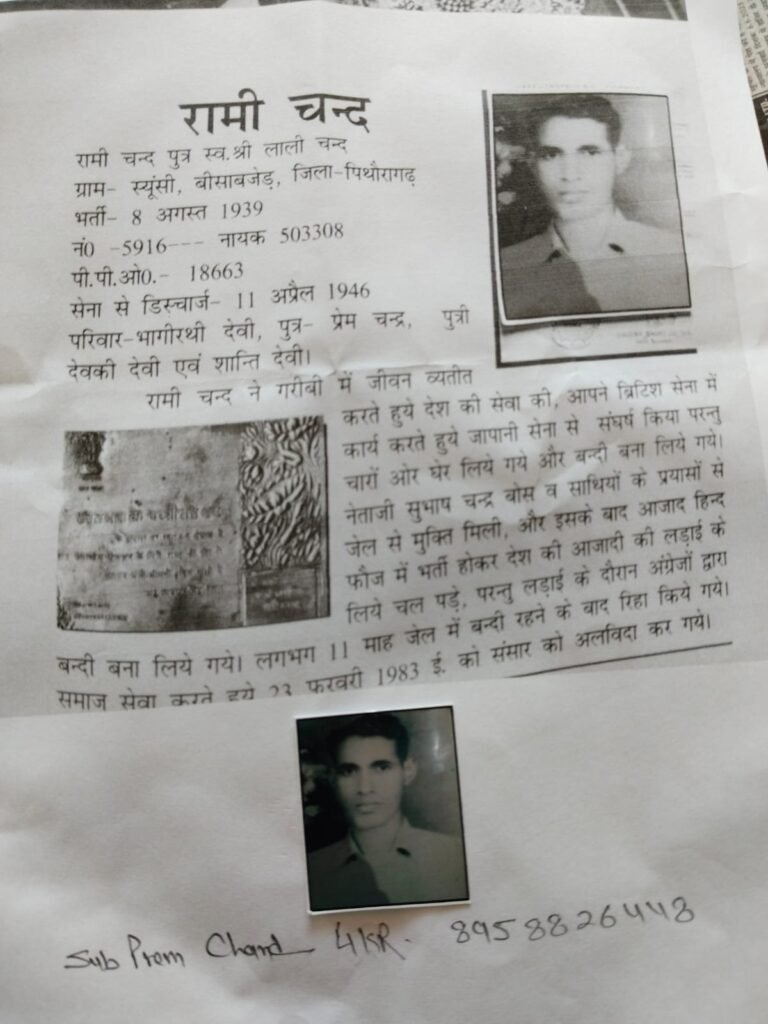 रामी चन्द
रामी चन्द पुत्र स्व.श्री लाली चन्द
ग्राम- स्यूंसी, बीसाबजेड़, जिला-पिथौरागढ़
भर्ती- 8 अगस्त 1939
नं0 -5916--- नायक 503308
पी.पी.ओ0.- 18663
सेना से डिस्चार्ज- 11 अप्रैल 1946
परिवार-भागीरथी देवी, पुत्र- प्रेम चन्द्र, पुत्री
देवकी देवी एवं शान्ति देवी।
रामी चन्द ने गरीबी में जीवन व्यतीत
करते हुये देश की सेवा की, आपने ब्रिटिश सेना में
कार्य करते हुये जापानी सेना से संघर्ष किया परन्तु
चारों ओर घेर लिये गये और बन्दी बना लिये गये।
नेताजी सुभाष चन्द्र बोस व साथियों के प्रयासों से
जेल से मुक्ति मिली, और इसके बाद आजाद हिन्द
फौज में भर्ती होकर देश की आजादी की लड़ाई के
लिये चल पड़े, परन्तु लड़ाई के दौरान अंग्रेजों द्वारा
बन्दी बना लिये गये। लगभग 11 माह जेल में बन्दी रहने के बाद रिहा किये गये।
समाज सेवा करते हुये 23 फरवरी 1983 ई. को संसार को अलविदा कर गये।
Sub Prem Chand 4KR. 8958826448